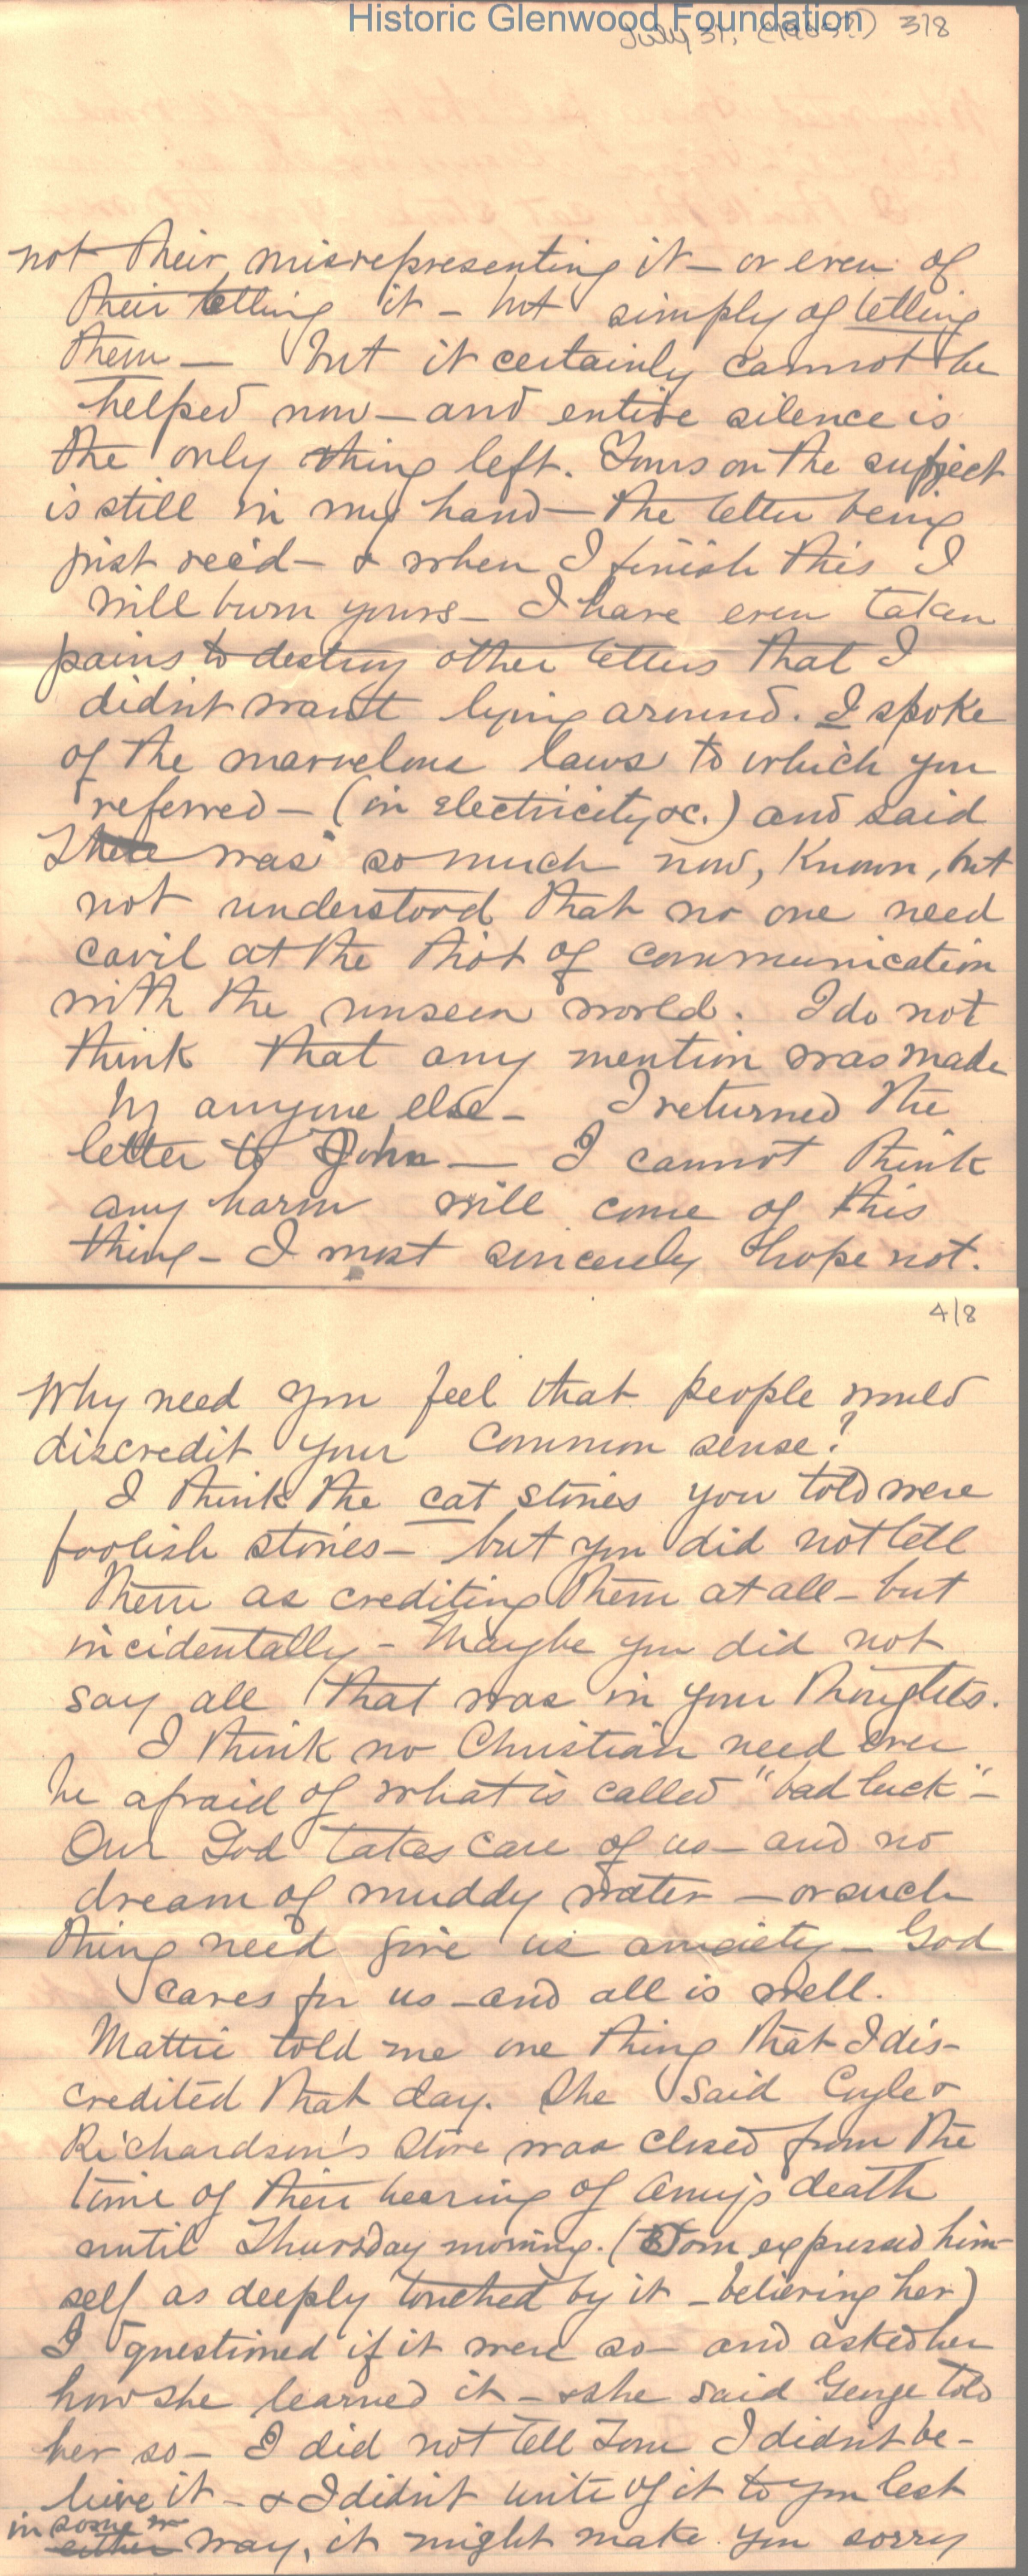 Historic Glenwood Foundation
July 31, (1905?) 3/8
not their misrepresenting it — or even of
their telling it — but simply of telling
them — but it certainly cannot be
helped now — and entire silence is
the only thing left. Yours on the subject
is still in my hand — the letter being
just rec'd — & when I finish this I
will burn yours — I have even taken
pains to destroy other letters that I
didn't want lying around. I spoke
of the marvelous laws to which you
referred — (in electricity &c.) and said
There was so much now, known, but
not understood that no one need
cavil at the tho't of communication
with the unseen world. I do not
think that any mention was made
by anyone else — I returned the
letter to John — I cannot think
any harm will come of this
thing — I most sincerely hope not.
4/8
Why need you feel that people would
discredit your common sense?
I think the cat stories you told were
foolish stories — but you did not tell
them as crediting them at all — but
incidentally — Maybe you did not
say all that was in your thoughts.
I think no Christian need ever
be afraid of what is called "bad luck" —
Our God takes care of us — and no
dream of muddy water — or such
thing need give us anxiety — God
cares for us — and all is well.
Mattie told me one thing that I dis-
credited that day. She said Coyle &
Richardson's Store was closed from the
time of their hearing of Amy's death
until Thursday morning. (Tom expressed him-
self as deeply touched by it — believing her)
I questioned if it were so — and asked her
how she learned it — & she said George told
her so — I did not tell Tom I didn't be-
lieve it — & I didn't write of it to you lest
in some
either way, it might make you sorry